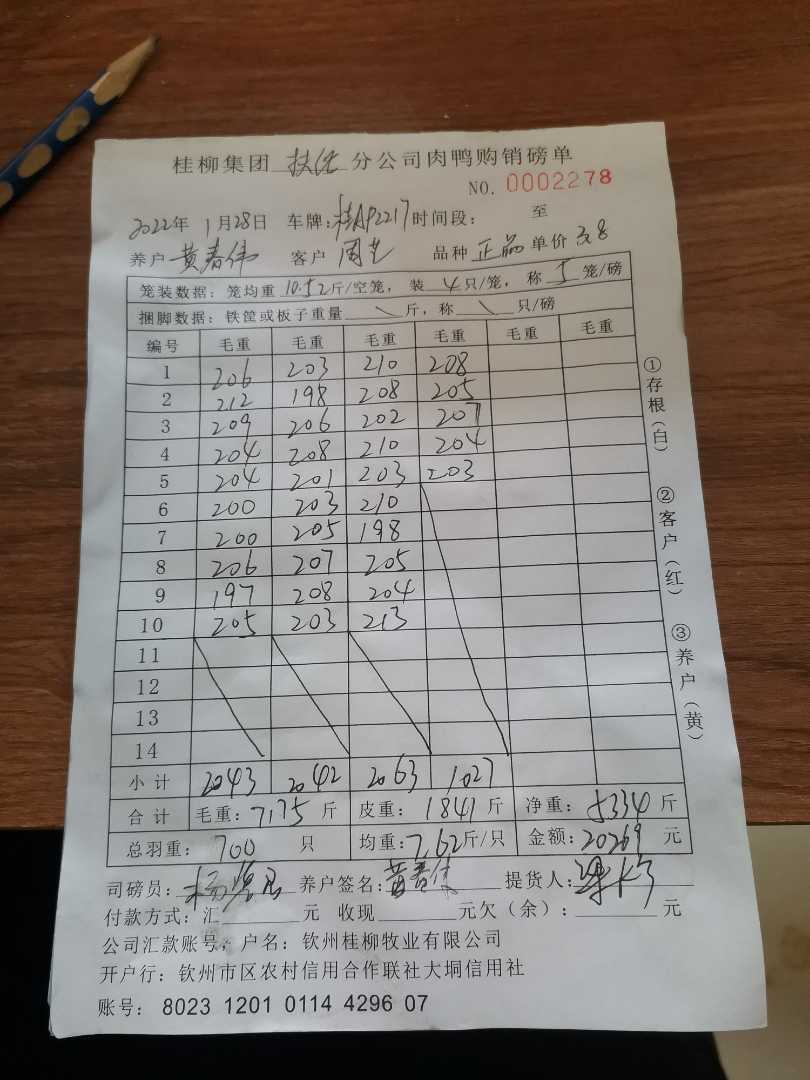 桂柳集团 扶绥 分公司肉鸭购销磅单
NO. 0002278
2022年 1月28日 车牌:桂AP2217 时间段: 至
养户 黄春伟 客户 周艺 品种 正品 单价 3.8
笼装数据: 笼均重 10.52 斤/空笼, 装 4 只/笼, 称 5 笼/磅
捆脚数据: 铁筐或板子重量 \ 斤, 称 \ 只/磅
编号 毛重 毛重 毛重 毛重 毛重 毛重
1 206 203 210 208
2 212 198 208 205
3 209 206 202 207
4 204 208 210 204
5 204 201 203 203
6 200 203 210
7 200 205 198
8 206 207 205
9 197 208 204
10 205 203 213
11
12
13
14
小计 2043 2042 2063 1027
合计 毛重: 7175 斤 皮重: 1841 斤 净重: 5334 斤
总羽重: 700 只 均重: 7.62 斤/只 金额: 20269 元
司磅员: 养户签名: 黄春伟 提货人:
付款方式: 汇 元 收现 元 欠(余): 元
公司汇款账号, 户名: 钦州桂柳牧业有限公司
开户行: 钦州市区农村信用合作联社大垌信用社
账号: 8023 1201 0114 4296 07
①存根(白)
②客户(红)
③养户(黄)